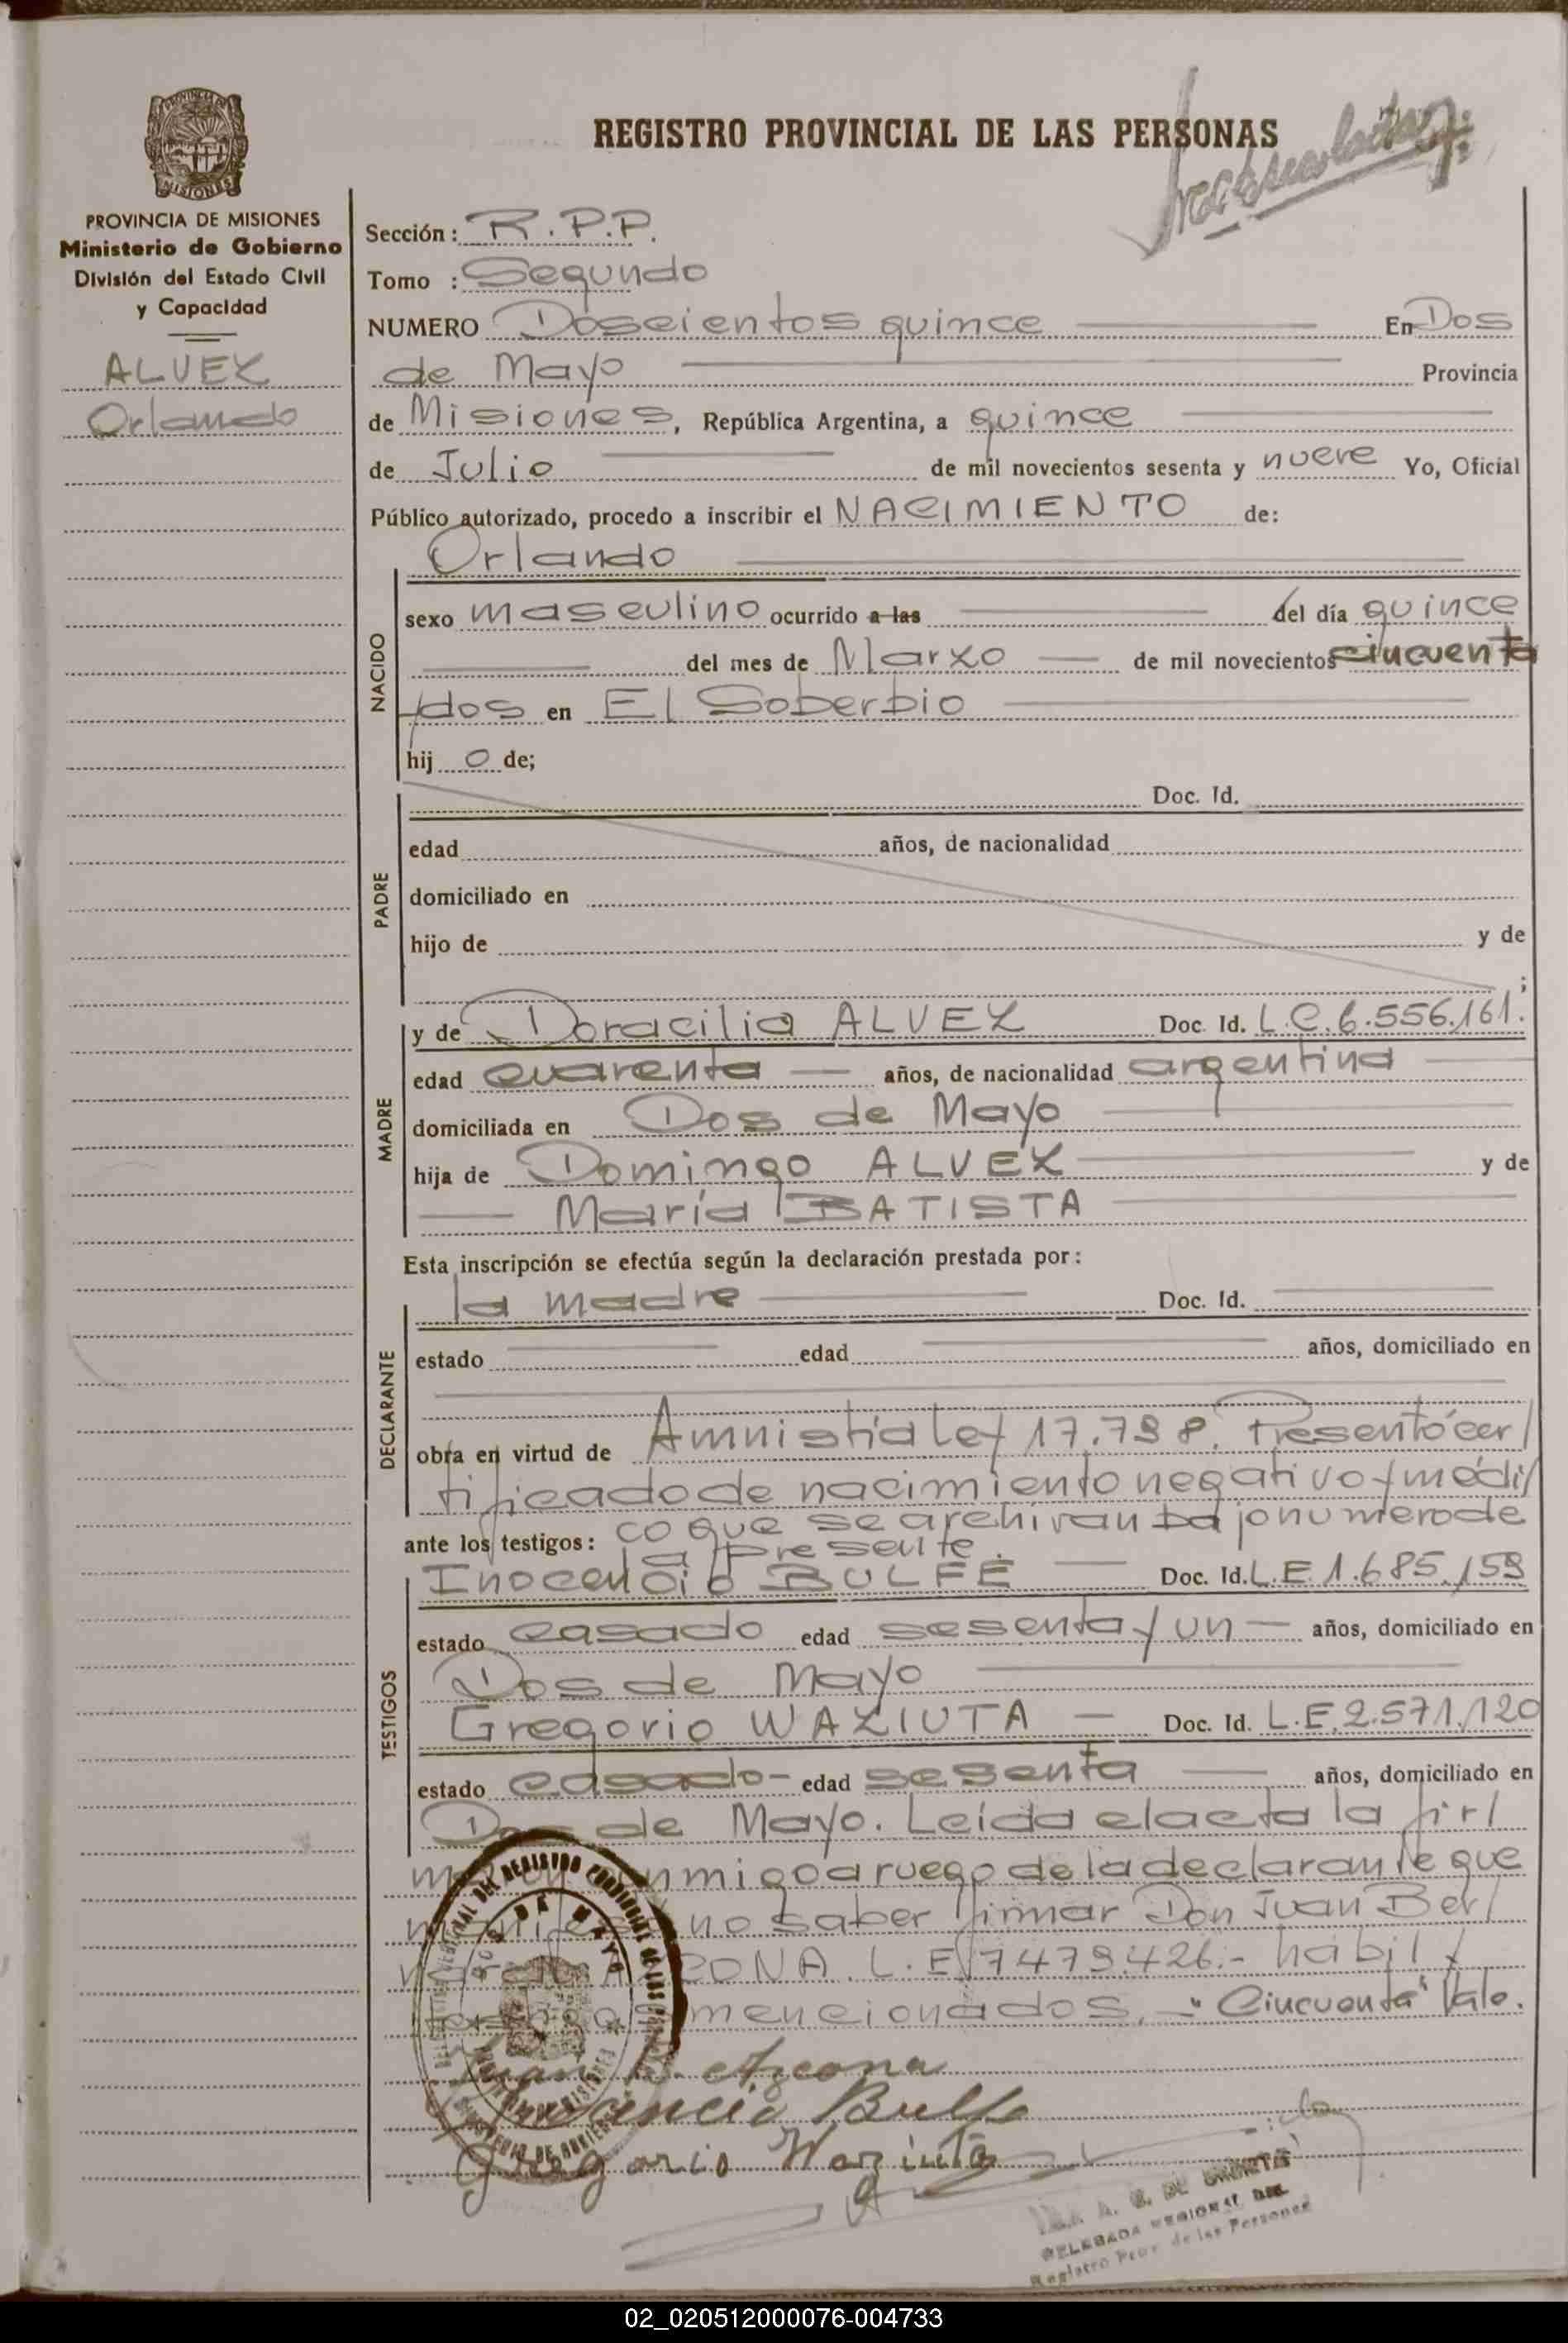 REGISTRO PROVINCIAL DE LAS PERSONAS
MISIONES
PROVINCIA DE MISIONES
Ministerio de Gobierno
División del Estado Civil
y Capacidad
ALVEZ
Orlando
Sección: R.P.P.
Tomo : Segundo
NUMERO Doscientos quince En Dos
de Mayo Provincia
de Misiones, República Argentina, a quince
de Julio de mil novecientos sesenta y nueve Yo, Oficial
Público autorizado, procedo a inscribir el NACIMIENTO de:
Orlando
NACIDO
sexo masculino ocurrido a las del día quince
del mes de Marzo de mil novecientos cincuenta
y dos en El Soberbio
hij o de;
PADRE
Doc. Id.
edad años, de nacionalidad
domiciliado en
hijo de y de
;
MADRE
y de Doracilia ALVEZ Doc. Id. L.C.6.556.161.
edad cuarenta años, de nacionalidad argentina
domiciliada en Dos de Mayo
hija de Domingo ALVEZ y de
María BATISTA
Esta inscripción se efectúa según la declaración prestada por:
DECLARANTE
la madre Doc. Id.
estado edad años, domiciliado en
obra en virtud de Amnistía Ley 17.798. Presentó cer/
tificado de nacimiento negativo y médi/
ante los testigos: co que se archivan bajo numero de
la presente.
TESTIGOS
Inocencio BULFE Doc. Id. L.E.1.685.159
estado casado edad sesenta y un años, domiciliado en
Dos de Mayo
Gregorio WAZIUTA Doc. Id. L.E.2.571.120
estado casado- edad sesenta años, domiciliado en
Dos de Mayo. Leída el acta la fir/
conmigo a ruego de la declarante que
no saber firmar Don Juan Ber/
L.E.7479.426.- habil y
mencionados.- "Cincuenta" Vale.
Azcona
Inocencio Bulfe
Gregorio Waziuta
DELEGADA REGIONAL DEL
Registro Prov. de las Personas
02_020512000076-004733